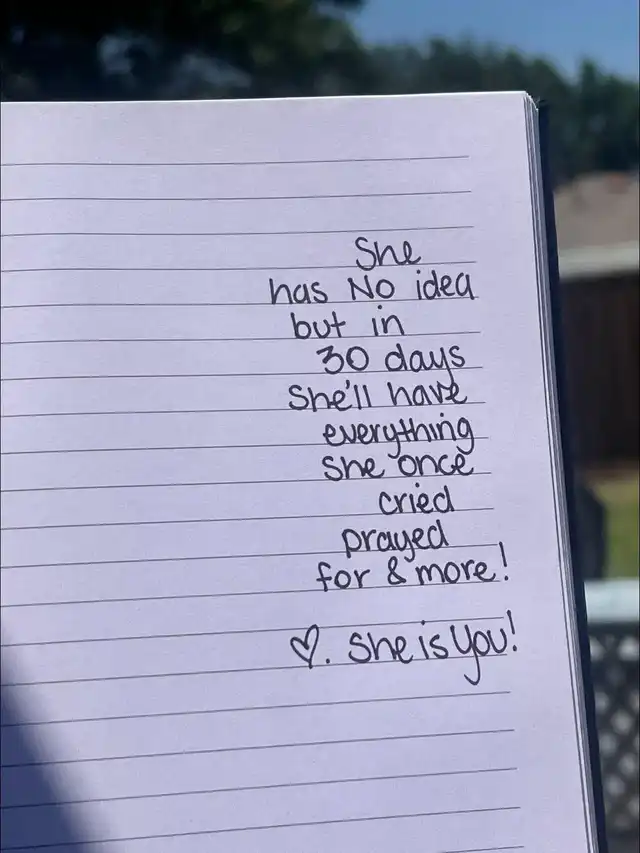 She
has No idea
but in
30 days
She'll have
everything
she once
cried
prayed
for & more!
♡. She is You!